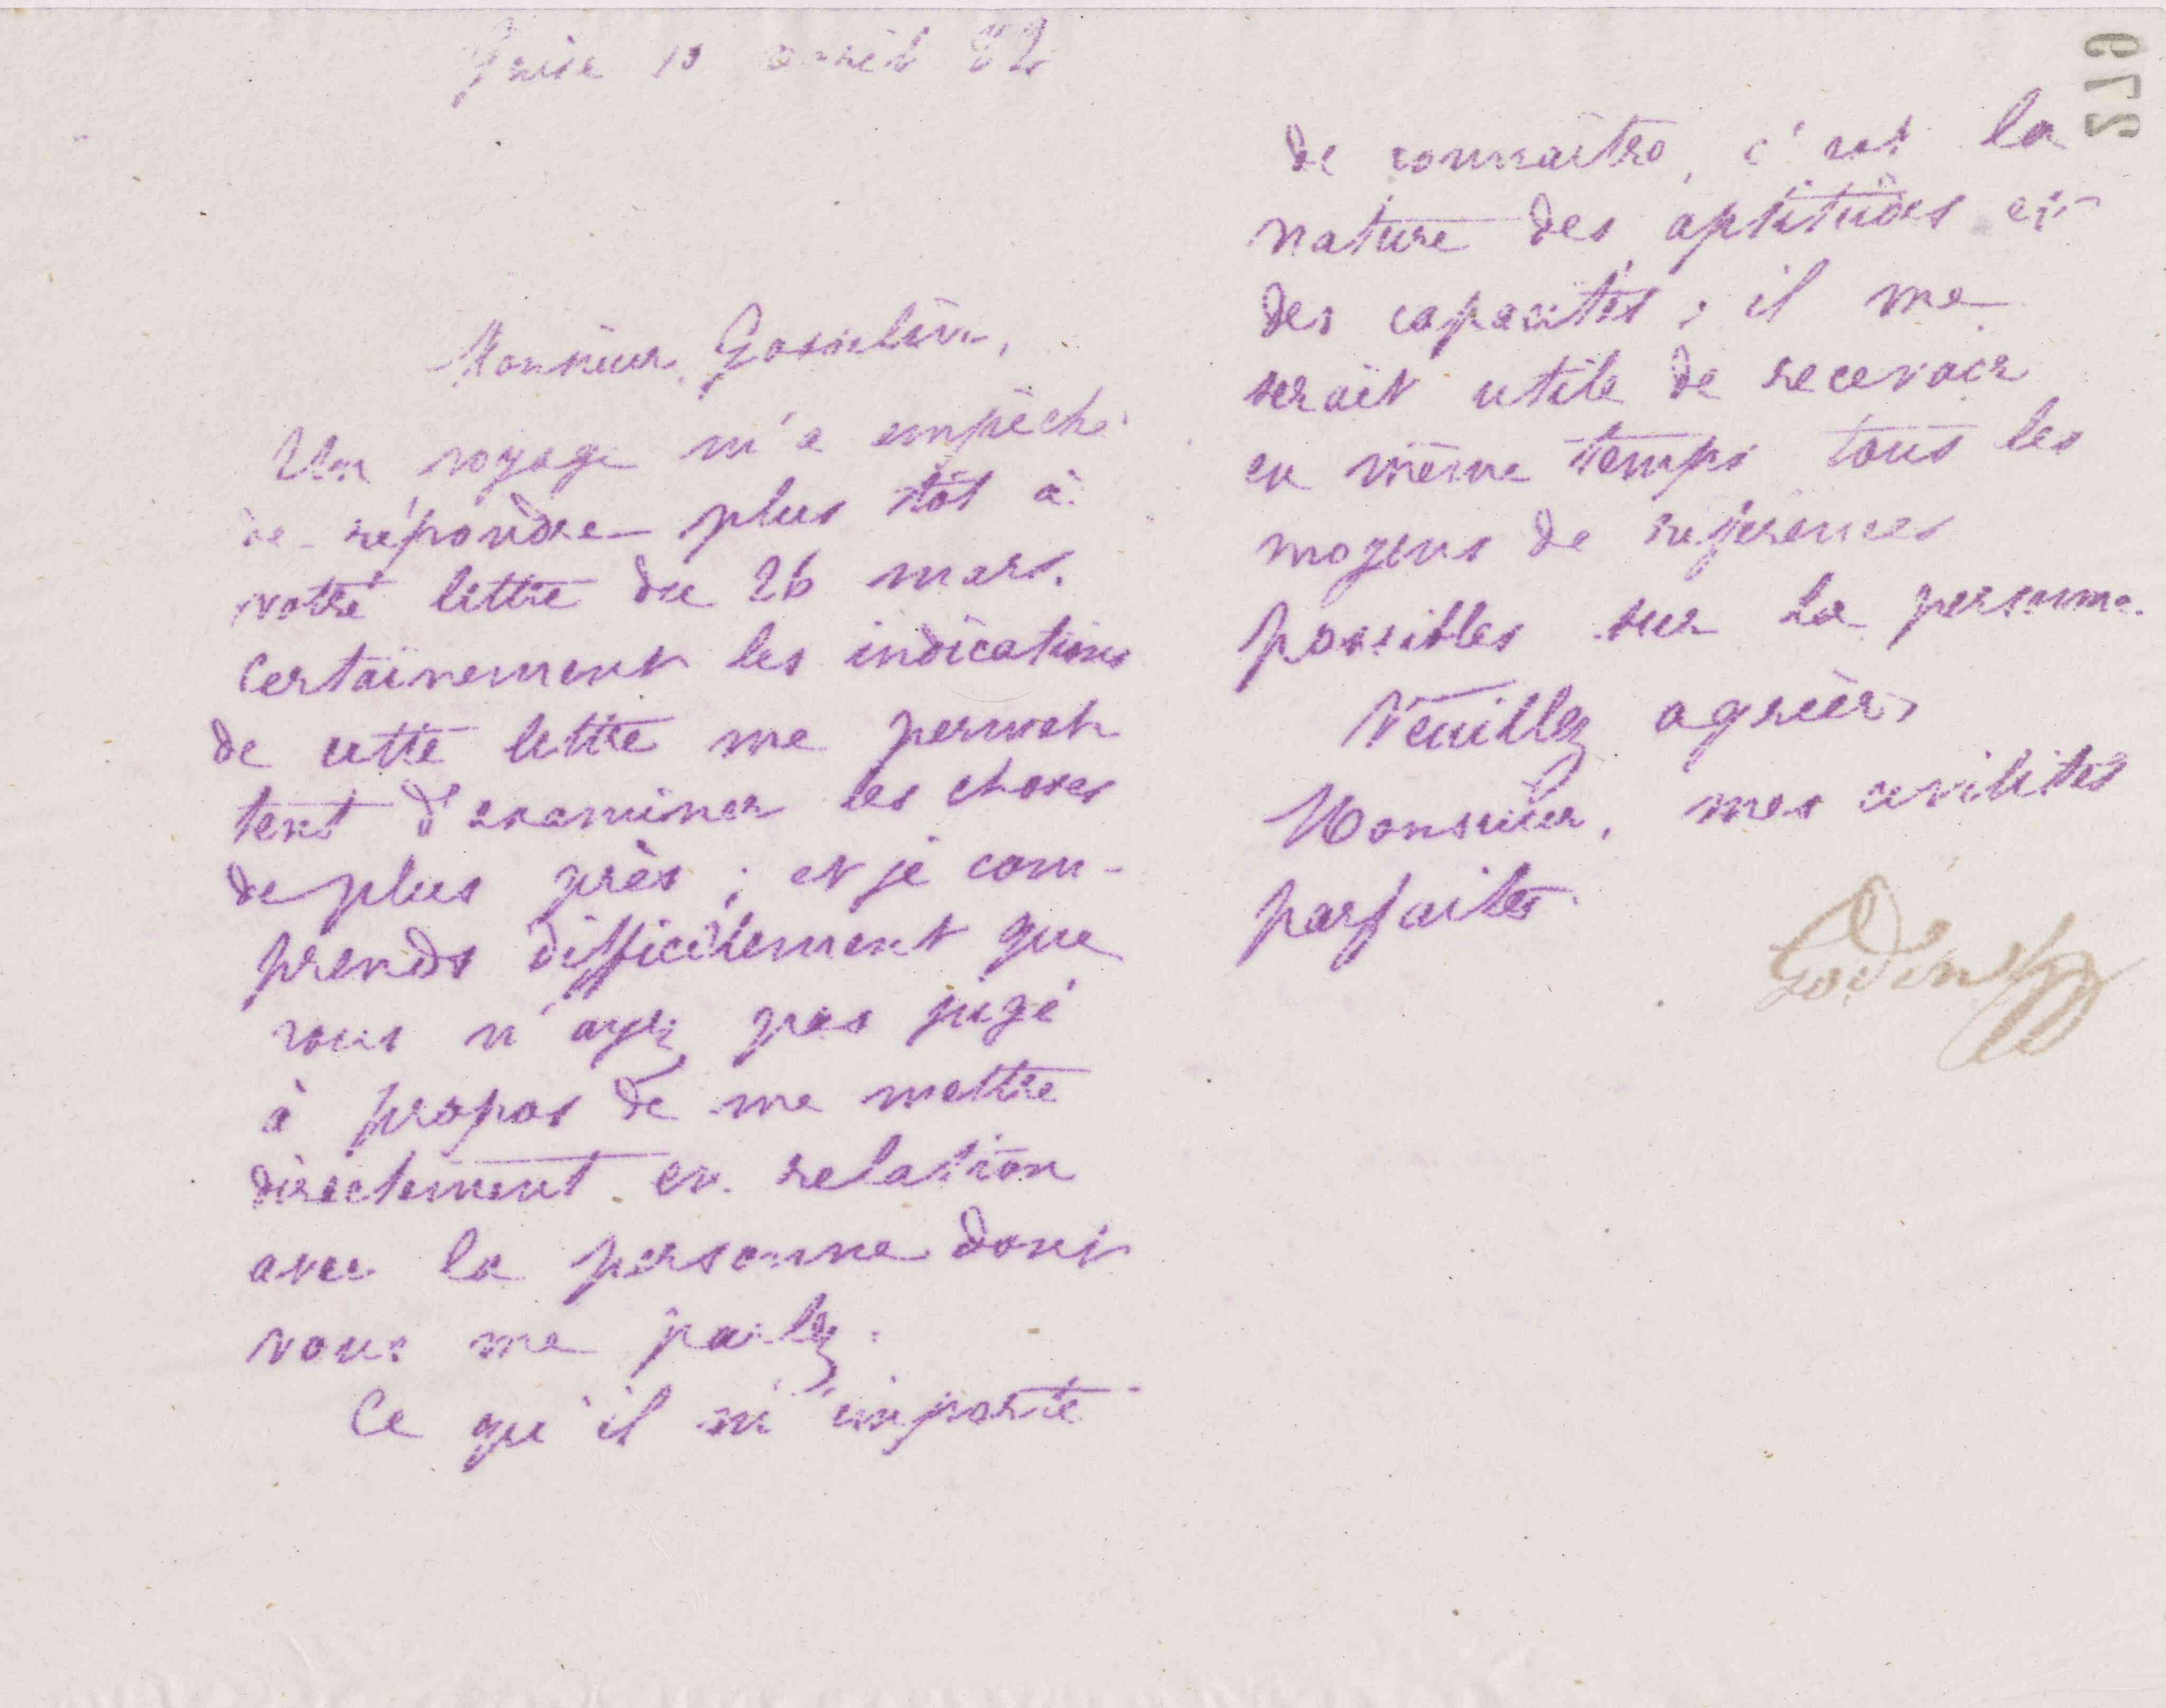 Guise 10 avril 82
Monsieur Gosselin,
Un voyage m'a empêché
de répondre plus tôt à
votre lettre du 26 mars.
Certainement les indications
de cette lettre me permet
tent d'examiner les choses
de plus près ; et je com-
prends difficilement que
vous n'ayez pas jugé
à propos de me mettre
directement en relation
avec la personne dont
vous me parlez.
Ce qu'il m'importe
279
de connaître, c'est la
nature des aptitudes et
des capacités ; il me
serait utile de recevoir
en même temps tous les
moyens de références
possibles sur la personne.
Veuillez agréer,
Monsieur, mes civilités
parfaites.
Godin